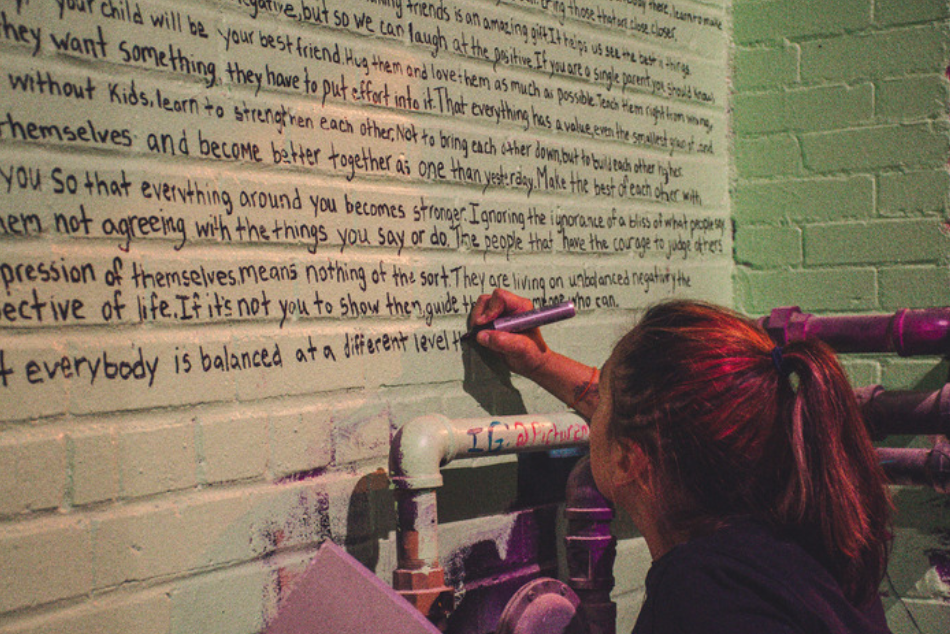 those that are close closer.
friends is an amazing gift. It helps us see the best in things
your child will be negative, but so we can laugh at the positive. If you are a single parent you should know
they want something, your best friend. Hug them and love them as much as possible. Teach them right from wrong,
without kids, they have to put effort into it. That everything has a value, even the smallest grain of sand.
learn to strengthen each other. Not to bring each other down, but to build each other higher.
themselves and become better together as one than yesterday. Make the best of each other with
you so that everything around you becomes stronger. Ignoring the ignorance of a bliss of what people say
not agreeing with the things you say or do. The people that have the courage to judge others
pression of themselves, means nothing of the sort. They are living on unbalanced negativity the
ective of life. If it's not you to show then, guide who can.
everybody is balanced at a different level
IG: @Picturem